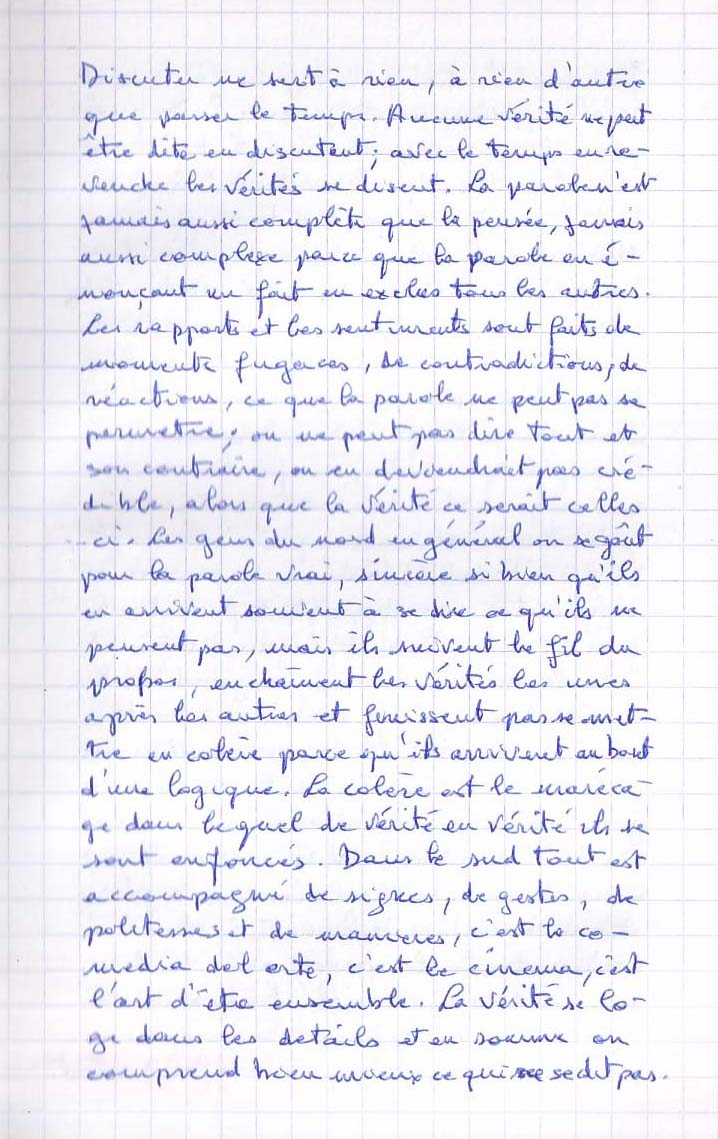 Discuter ne sert à rien, à rien d'autre
que passer le temps. Aucune vérité ne peut
être dite en discutant; avec le temps en re-
venche les vérités se disent. La parole n'est
jamais aussi complète que la pensée, jamais
aussi complexe parce que la parole en é-
nonçant un fait en exclus tous les autres.
Les rapports et les sentiments sont faits de
moments fugaces, de contradictions, de
réactions, ce que la parole ne peut pas se
permetre; on ne peut pas dire tout et
son contraire, on en deviendrait pas cré-
dible, alors que la vérité ce serait celles
-ci. Les gens du nord en général on se goût
pour la parole vrai, sincère si bien qu'ils
en arrivent souvent à se dire ce qu'ils ne
pensent pas, mais ils suivent le fil du
propos, enchaînent les vérités les unes
après les autres et finissent par se met-
tre en colère parce qu'ils arrivent au bout
d'une logique. La colère est le maréca-
ge dans lequel de vérité en vérité ils se
sont enfoncés. Dans le sud tout est
accompagné de signes, de gestes, de
politesses et de manières, c'est la co-
media del arte, c'est le cinema, c'est
l'art d'être ensemble. La vérité se lo-
ge dans les détails et en somme on
comprend bien mieux ce qui ne se dit pas.